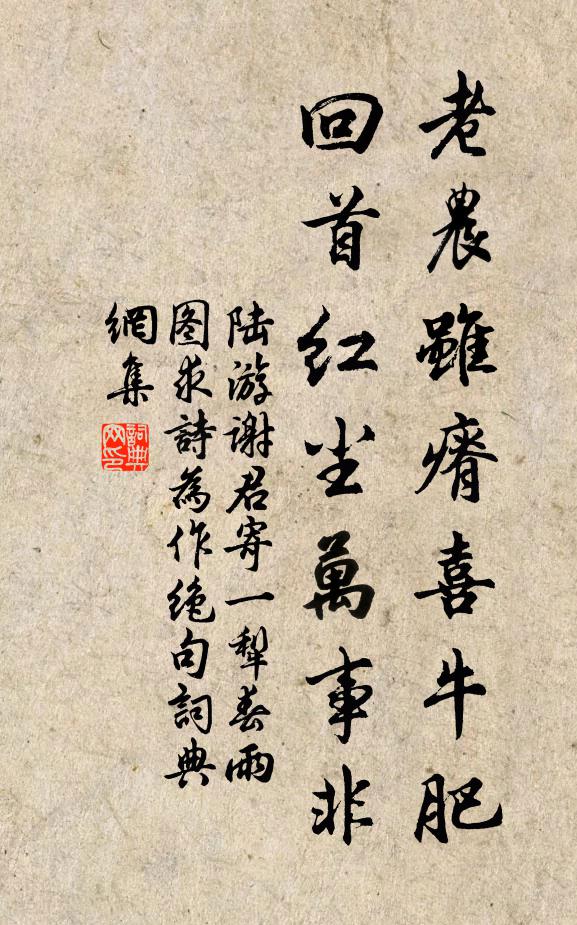 老農雖瘠喜牛肥
回首紅尘萬事非
陆游謝君寄一犁春雨
图求詩為作绝句詞典
網集
詞典
网印